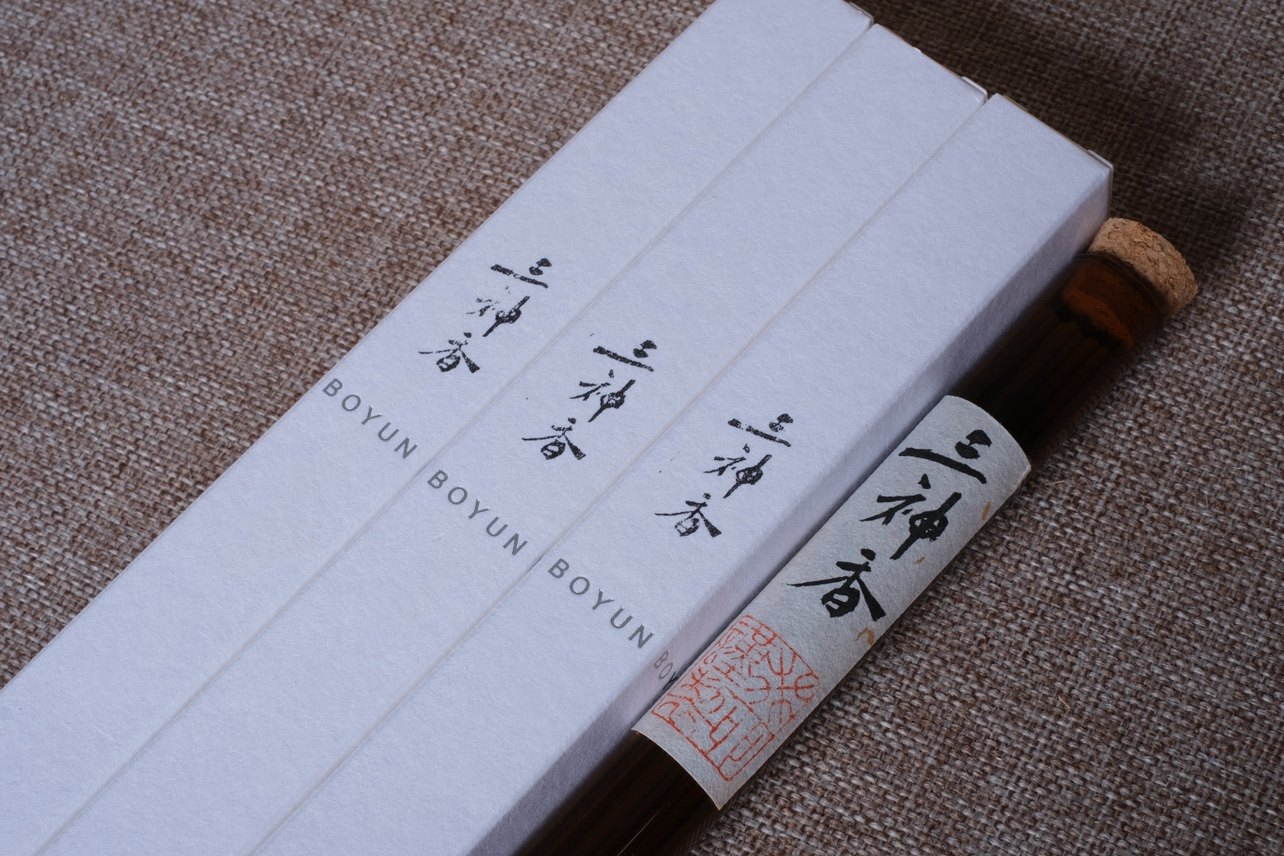 三神香
BOYUN
三神香
BOYUN
三神香
BOYUN
BOY
三神香